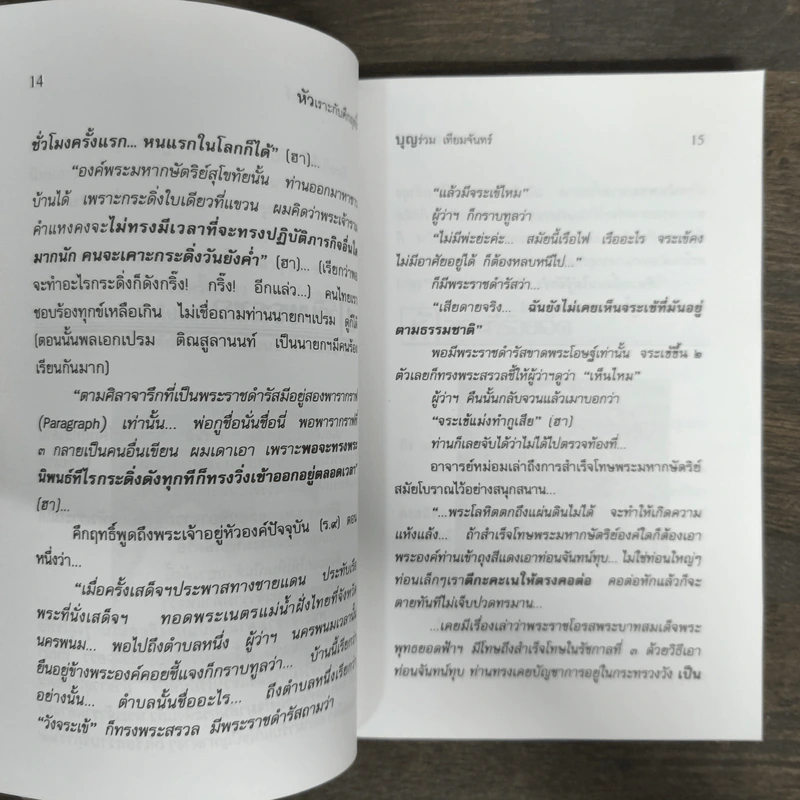 14
หัวเราะกับคึกฤทธิ์
ชั่วโมงครั้งแรก... หนแรกในโลกก็ได้” (ฮา)...
“องค์พระมหากษัตริย์สุโขทัยนั้น ท่านออกมาหา
บ้านได้ เพราะกระดิ่งใบเดียวที่แขวน ผมคิดว่าพระเจ้า
คำแหงคงจะไม่ทรงมีเวลาที่จะทรงปฏิบัติภารกิจอื่น
มากนัก คนจะเคาะกระดิ่งวันยังค่ำ” (ฮา)... (เรียกว่าพอ
จะทำอะไรกระดิ่งก็ดังกริ๊ง! กริ๊ง! อีกแล่ว...) คนไทยเรา
ชอบร้องทุกข์เหลือเกิน ไม่เชื่อถามท่านนายกฯเปรม ดูก็ได้
(ตอนนั้นพลเอกเปรม ติณสูลานนท์ เป็นนายกฯมีคนร้อง
เรียนกันมาก)
“ตามศิลาจารึกที่เป็นพระราชดำรัสมีอยู่สองพารากราฟ
(Paragraph) เท่านั้น... พ่อกูชื่อนั่นชื่อนี่ พอพารากราฟที่
๓ กลายเป็นคนอื่นเขียน ผมเดาเอา เพราะพอจะทรงพระ
นิพนธ์ทีไรกระดิ่งดังทุกทีก็ทรงวิ่งเข้าออกอยู่ตลอดเวลา”
(ฮา)...
คึกฤทธิ์พูดถึงพระเจ้าอยู่หัวองค์ปัจจุบัน (ร.๙) ตอน
หนึ่งว่า...
“เมื่อครั้งเสด็จฯประพาสทางชายแดน ประทับเรือ
พระที่นั่งเสด็จฯ ทอดพระเนตรแม่น้ำฝั่งไทยที่จังหวัด
นครพนม... พอไปถึงตำบลหนึ่ง ผู้ว่าฯ นครพนมเวลานั้น
ยืนอยู่ข้างพระองค์คอยชี้แจงก็กราบทูลว่า... บ้านนี้เรียกว่า
อย่างนั้น... ตำบลนั้นชื่ออะไร... ถึงตำบลหนึ่งเรียกว่า
“วังจระเข้” ก็ทรงพระสรวล มีพระราชดำรัสถามว่า
บุญร่วม เทียมจันทร์
15
“แล้วมีจระเข้ไหม”
ผู้ว่าฯ ก็กราบทูลว่า
“ไม่มีพ่ะย่ะค่ะ... สมัยนี้เรือไฟ เรืออะไร จระเข้คง
ไม่มีอาศัยอยู่ได้ ก็ต้องหลบหนีไป...”
ก็มีพระราชดำรัสว่า...
“เสียดายจริง... ฉันยังไม่เคยเห็นจระเข้ที่มันอยู่
ตามธรรมชาติ”
พอมีพระราชดำรัสขาดพระโอษฐ์เท่านั้น จระเข้ขึ้น ๒
ตัวเลยก็ทรงพระสรวลชี้ให้ผู้ว่าฯดูว่า “เห็นไหม”
ผู้ว่าฯ คืนนั้นกลับจวนแล้วเมาบอกว่า
“จระเข้แม่งทำกูเสีย” (ฮา)
ท่านก็เลยจับได้ว่าไม่ได้ไปตรวจท้องที่...
อาจารย์หม่อมเล่าถึงการสำเร็จโทษพระมหากษัตริย์
สมัยโบราณไว้อย่างสนุกสนาน...
“...พระโลหิตตกถึงแผ่นดินไม่ได้ จะทำให้เกิดความ
แห้งแล้ง... ถ้าสำเร็จโทษพระมหากษัตริย์องค์ใดก็ต้องเอา
พระองค์ท่านเข้าถุงสีแดงเอาท่อนจันทน์ทุบ... ไม่ใช่ท่อนใหญ่ๆ
ท่อนเล็กๆเราตีกะคะเนให้ตรงคอต่อ คอต่อหักแล้วก็จะ
ตายทันทีไม่เจ็บปวดทรมาน...
...เคยมีเรื่องเล่าว่าพระราชโอรสพระบาทสมเด็จพระ
พุทธยอดฟ้าฯ มีโทษถึงสำเร็จโทษในรัชกาลที่ ๓ ด้วยวิธีเอา
ท่อนจันทน์ทุบ ท่านทรงเคยบัญชาการอยู่ในกระทรวงวัง เป็น